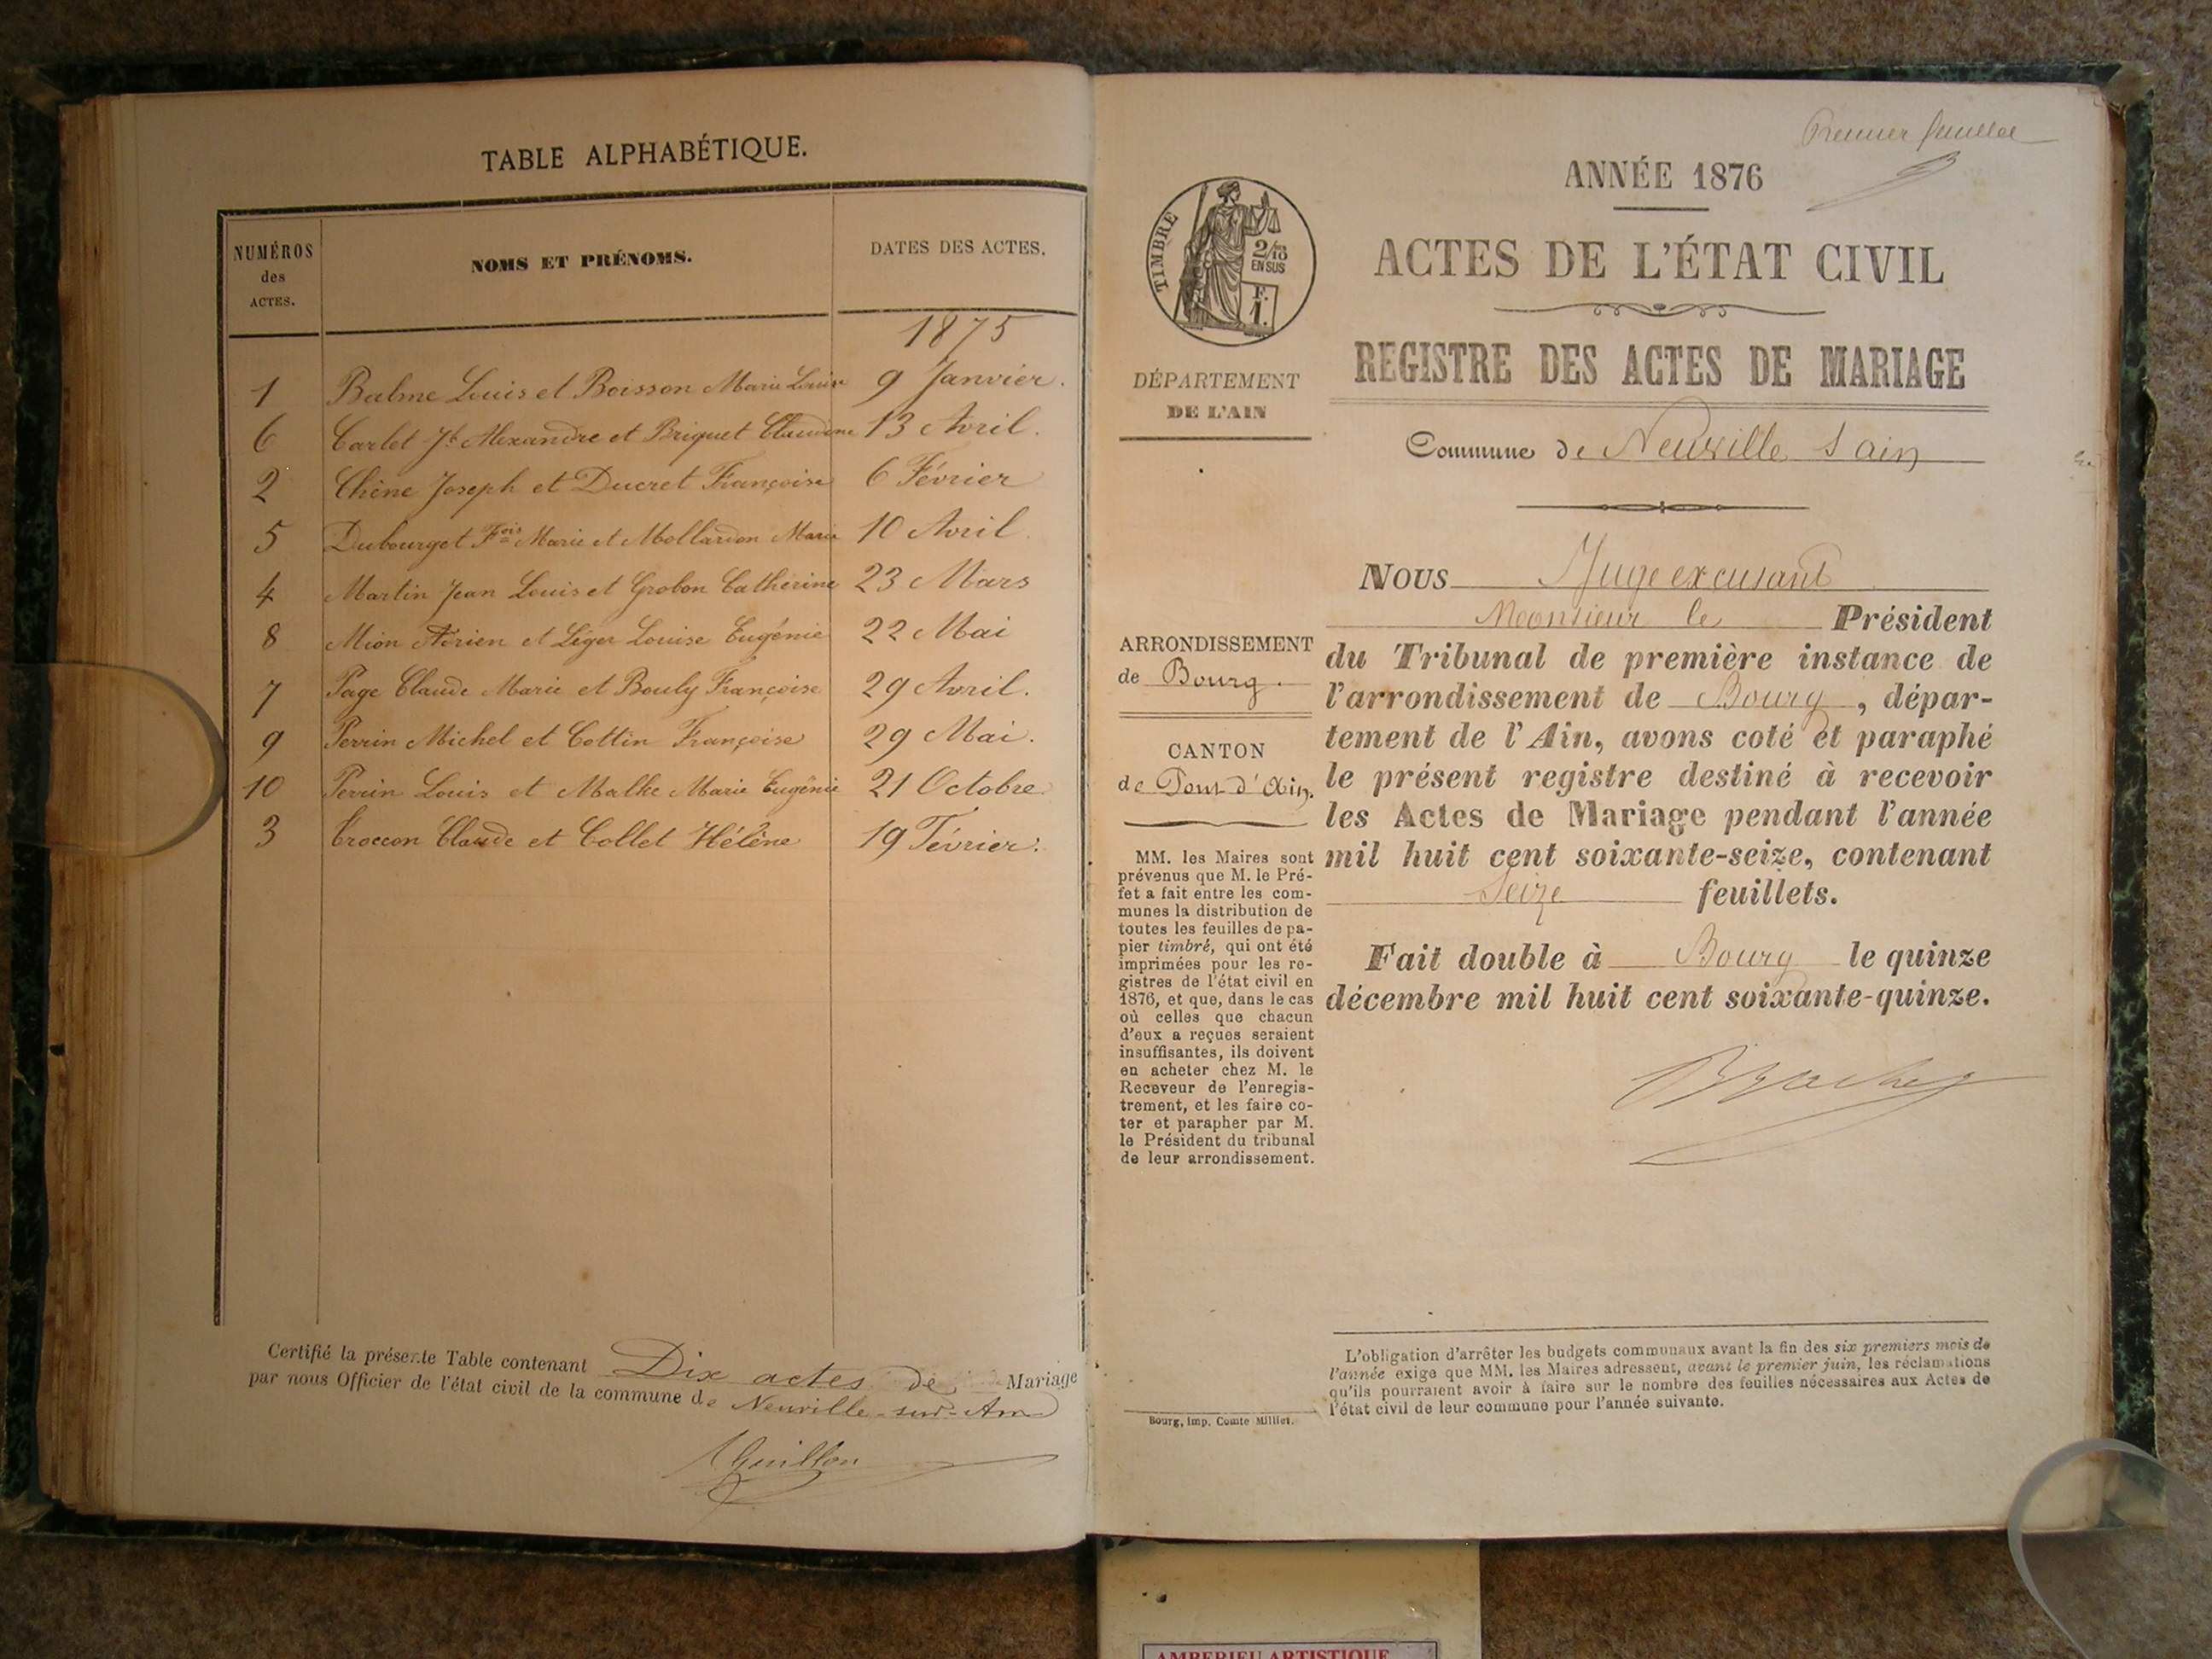 TABLE ALPHABÉTIQUE.
NUMÉROS
des
ACTES.
NOMS ET PRÉNOMS.
DATES DES ACTES.
1875
1 Balme Louis et Boisson Marie Louise 9 Janvier.
6 Carlet Jh Alexandre et Briquet Claudine 13 Avril.
2 Chêne Joseph et Ducret Françoise 6 Février
5 Dubourget Fois Marie et Mollardon Marie 10 Avril.
4 Martin Jean Louis et Grobon Catherine 23 Mars
8 Mion Adrien et Léger Louise Eugénie 22 Mai
7 Page Claude Marie et Bouly Françoise 29 Avril.
9 Perrin Michel et Cottin Françoise 29 Mai.
10 Perrin Louis et Malhe Marie Eugénie 21 Octobre.
3 Troccon Claude et Collet Hélène 19 Février.
Certifié la présente Table contenant Dix actes de Mariage
par nous Officier de l'état civil de la commune de Neuville-sur-Ain
Guillon
Premier feuillet
ANNÉE 1876
TIMBRE
2/10
EN SUS
F.
1.
ACTES DE L'ÉTAT CIVIL
REGISTRE DES ACTES DE MARIAGE
DÉPARTEMENT
DE L'AIN
Commune de Neuville s ain
ARRONDISSEMENT
de Bourg.
CANTON
de Pont d'Ain.
MM. les Maires sont
prévenus que M. le Pré-
fet a fait entre les com-
munes la distribution de
toutes les feuilles de pa-
pier timbré, qui ont été
imprimées pour les re-
gistres de l'état civil en
1876, et que, dans le cas
où celles que chacun
d'eux a reçues seraient
insuffisantes, ils doivent
en acheter chez M. le
Receveur de l'enregis-
trement, et les faire co-
ter et parapher par M.
le Président du tribunal
de leur arrondissement.
Bourg, imp. Comte Milliet.
NOUS Juge excusant
Monsieur le Président
du Tribunal de première instance de
l'arrondissement de Bourg, dépar-
tement de l'Ain, avons coté et paraphé
le présent registre destiné à recevoir
les Actes de Mariage pendant l'année
mil huit cent soixante-seize, contenant
Seize feuillets.
Fait double à Bourg le quinze
décembre mil huit cent soixante-quinze.
L'obligation d'arrêter les budgets communaux avant la fin des six premiers mois de
l'année exige que MM. les Maires adressent, avant le premier juin, les réclamations
qu'ils pourraient avoir à faire sur le nombre des feuilles nécessaires aux Actes de
l'état civil de leur commune pour l'année suivante.
AMBERIEU ARTISTIQUE